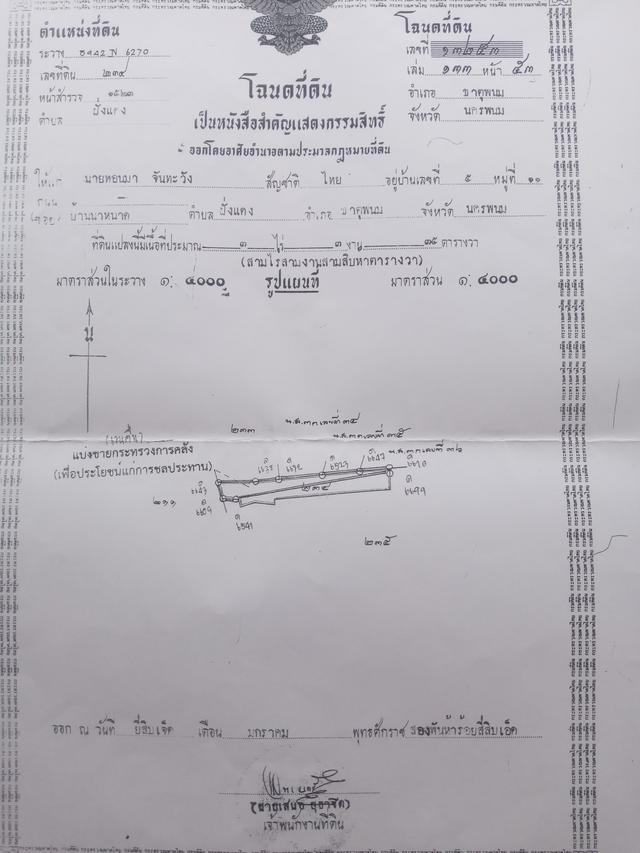 ตำแหน่งที่ดิน
ระวาง 5442 N 6270
เลขที่ดิน ๒๓๔
หน้าสำรวจ ๑๕๒๓
ตำบล ฝั่งแดง
โฉนดที่ดิน
เลขที่ ๑๓๒๕๓
เล่ม ๑๓๓ หน้า ๕๓
อำเภอ ธาตุพนม
จังหวัด นครพนม
โฉนดที่ดิน
เป็นหนังสือสำคัญแสดงกรรมสิทธิ์
ออกโดยอาศัยอำนาจตามประมวลกฎหมายที่ดิน
ให้แก่ นายทอนมา จันทะวัง สัญชาติ ไทย อยู่บ้านเลขที่ ๕ หมู่ที่ ๑๐
ถนน
บ้านนาหนาด ตำบล ฝั่งแดง อำเภอ ธาตุพนม จังหวัด นครพนม
ที่ดินแปลงนี้มีเนื้อที่ประมาณ ๓ ไร่ ๓ งาน ๓๕ ตารางวา
(สามไร่สามงานสามสิบห้าตารางวา)
มาตราส่วนในระวาง ๑: ๔๐๐๐ รูปแผนที่ มาตราส่วน ๑: ๔๐๐๐
น
๒๓๓ น.ส.๓ก.เลขที่ ๓๔
น.ส.๓ก.เลขที่ ๓๕
น.ส.๓ก.เลขที่ ๓๖
แบ่งขายกระทรวงการคลัง
(เพื่อประโยชน์แก่การชลประทาน)
๒๓๔
๒๓๕
ออก ณ วันที่ ยี่สิบเจ็ด เดือน มกราคม พุทธศักราช สองพันห้าร้อยสี่สิบเอ็ด
เจ้าพนักงานที่ดิน